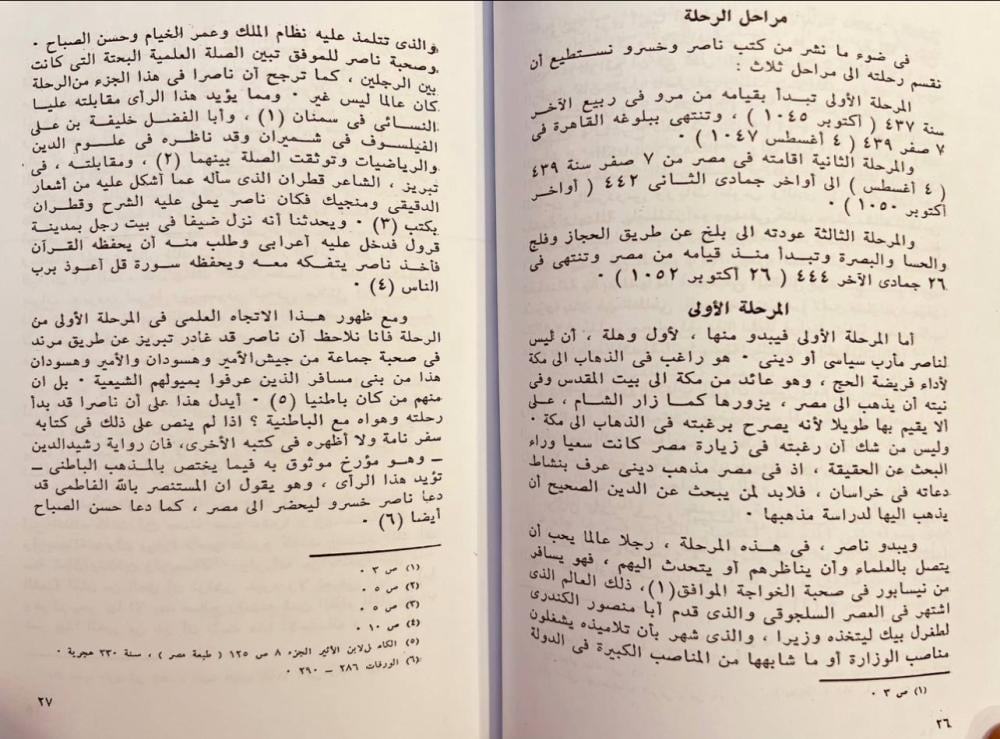 مراحل الرحلة
فى ضوء ما نشر من كتب ناصر وخسرو نستطيع أن
نقسم رحلته الى مراحل ثلاث :
المرحلة الأولى تبدأ بقيامه من مرو فى ربيع الآخر
سنة ٤٣٧ ( أكتوبر ١٠٤٥ ) ، وتنتهى ببلوغه القاهرة فى
٧ صفر ٤٣٩ ( ٤ أغسطس ١٠٤٧ ) ٠
والمرحلة الثانية اقامته فى مصر من ٧ صفر سنة ٤٣٩
( ٤ أغسطس ) الى أواخر جمادى الثانى ٤٤٢ ( أواخر
أكتوبر ١٠٥٠ ) ٠
والمرحلة الثالثة عودته الى بلخ عن طريق الحجاز وفلج
والحسا والبصرة وتبدأ منذ قيامه من مصر وتنتهى فى
٢٦ جمادى الآخر ٤٤٤ ( ٢٦ أكتوبر ١٠٥٢ ) ٠
المرحلة الأولى
أما المرحلة الأولى فيبدو منها ، لأول وهلة ، أن ليس
لناصر مأرب سياسى أو دينى ٠ هو راغب فى الذهاب الى مكة
لأداء فريضة الحج ، وهو عائد من مكة الى بيت المقدس وفى
نيته أن يذهب الى مصر ، يزورها كما زار الشام ، على
ألا يقيم بها طويلا لأنه يصرح برغبته فى الذهاب الى مكة ٠
وليس من شك أن رغبته فى زيارة مصر كانت سعيا وراء
البحث عن الحقيقة ، اذ فى مصر مذهب دينى عرف بنشاط
دعاته فى خراسان ، فلابد لمن يبحث عن الدين الصحيح أن
يذهب اليها لدراسة مذهبها ٠
ويبدو ناصر ، فى هذه المرحلة ، رجلا عالما يحب أن
يتصل بالعلماء وأن يناظرهم أو يتحدث اليهم ، فهو يسافر
من نيسابور فى صحبة الخواجة الموافق(١)، ذلك العالم الذى
اشتهر فى العصر السلجوقى والذى قدم أبا منصور الكندرى
لطغرل بيك ليتخذه وزيرا ، والذى شهر بأن تلاميذه يشغلون
مناصب الوزارة أو ما شابهها من المناصب الكبيرة فى الدولة
(١) ص ٣ ٠
٢٦
والذى تتلمذ عليه نظام الملك وعمر الخيام وحسن الصباح ٠
وصحبة ناصر للموفق تبين الصلة العلمية البحتة التى كانت
بين الرجلين ، كما ترجح أن ناصرا فى هذا الجزء من الرحلة
كان عالما ليس غير ٠ ومما يؤيد هذا الرأى مقابلته عليا
النسائى فى سمنان (١) ، وأبا الفضل خليفة بن على
الفيلسوف فى شميران وقد ناظره فى علوم الدين
والرياضيات وتوثقت الصلة بينهما (٢) ، ومقابلته ، فى
تبريز ، الشاعر قطران الذى سأله عما أشكل عليه من أشعار
الدقيقى ومنجيك فكان ناصر يملى عليه الشرح وقطران
يكتب (٣) ٠ ويحدثنا أنه نزل ضيفا فى بيت رجل بمدينة
قرول فدخل عليه أعرابى وطلب منه أن يحفظه القرآن
فأخذ ناصر يتفكه معه ويحفظه سورة قل أعوذ برب
الناس (٤) ٠
ومع ظهور هذا الاتجاه العلمى فى المرحلة الأولى من
الرحلة فانا نلاحظ أن ناصر قد غادر تبريز عن طريق مرند
فى صحبة جماعة من جيش الأمير وهسودان والأمير وهسودان
هذا من بنى مسافر الذين عرفوا بميولهم الشيعية ٠ بل ان
منهم من كان باطنيا (٥) ٠ أيدل هذا على أن ناصرا قد بدأ
رحلته وهواه مع الباطنية ؟ اذا لم ينص على ذلك فى كتابه
سفر نامة ولا أظهره فى كتبه الأخرى، فان رواية رشيدالدين
ــ وهو مؤرخ موثوق به فيما يختص بالمذهب الباطنى ــ
تؤيد هذا الرأى ، وهو يقول ان المستنصر بالله الفاطمى قد
دعا ناصر خسرو ليحضر الى مصر ، كما دعا حسن الصباح
أيضا (٦) ٠
(١) ص ٣ ٠
(٢) ص ٥ ٠
(٣) ص ٥ ٠
(٤) ص ١٠ ٠
(٥) الكامل لابن الأثير الجزء ٨ ص ١٢٥ ( طبعة مصر ) ، سنة ٣٣٠ هجرية ٠
(٦) الورقات ٢٨٦ ــ ٢٩٠ ٠
٢٧